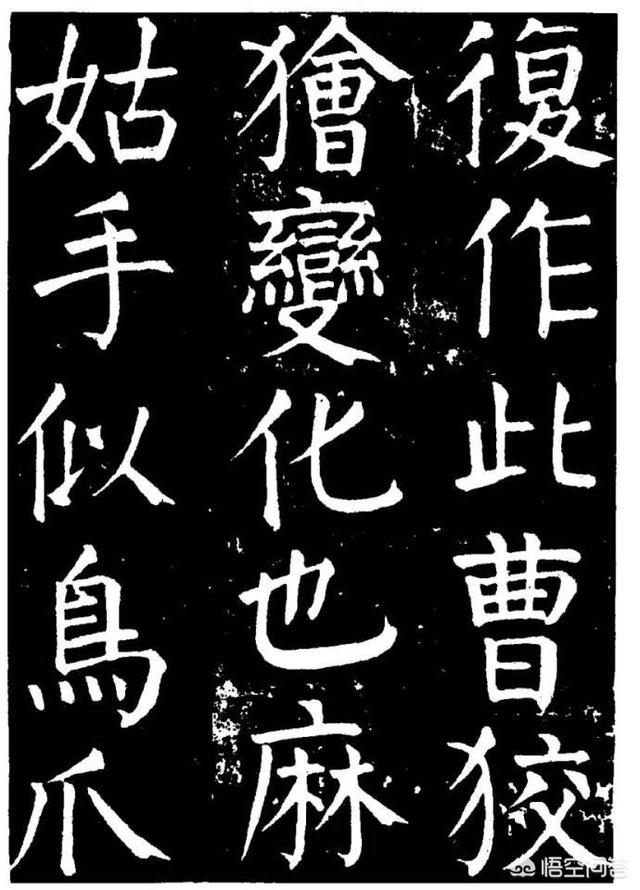 復作此曹狡
獪變化也麻
姑手似鳥爪
悟空问答